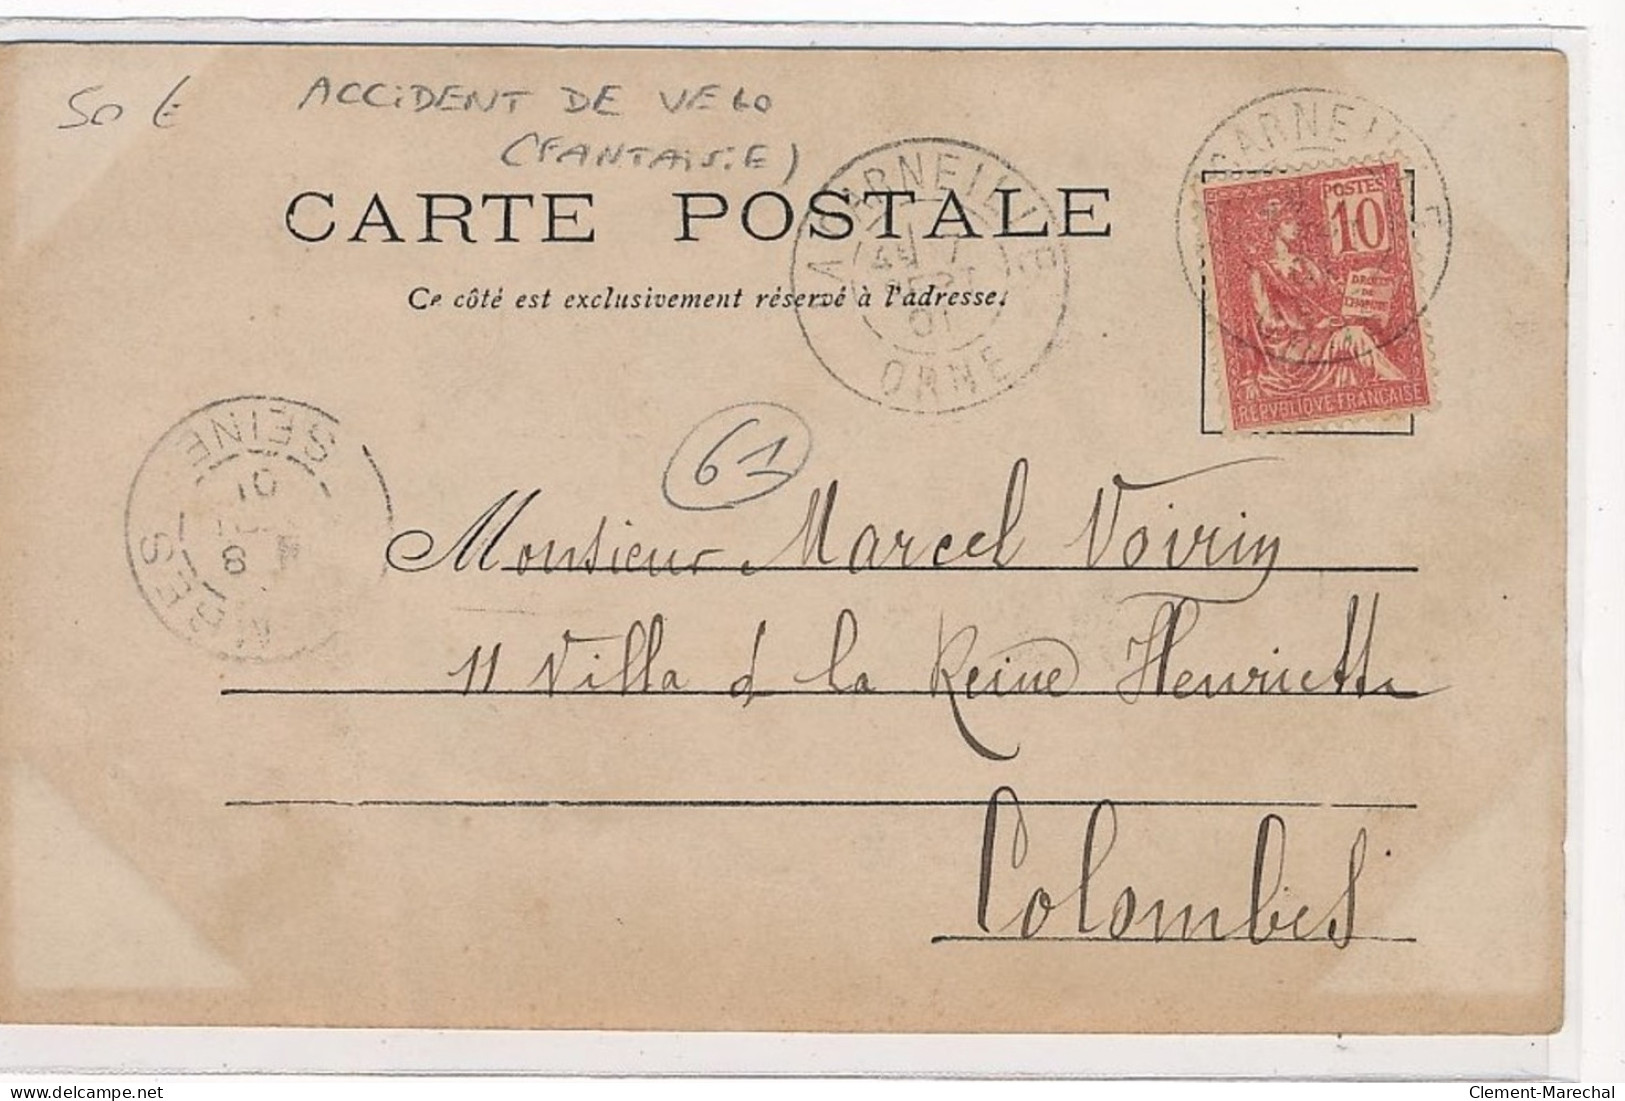 50 €
ACCIDENT DE VELO
(FANTAISIE)
CARTE POSTALE
Ce côté est exclusivement réservé à l'adresse.
LA CARNEILLE
7
SEPT
01
ORNE
CARNEILLE
POSTES
10
DROITS
DE
L'HOMME
REPVBLIQVE FRANÇAISE
SEINE
01
8
MBES
61
Monsieur Marcel Voirin
11 Villa d la Reine Henriette
Colombes
Clement-Marechal